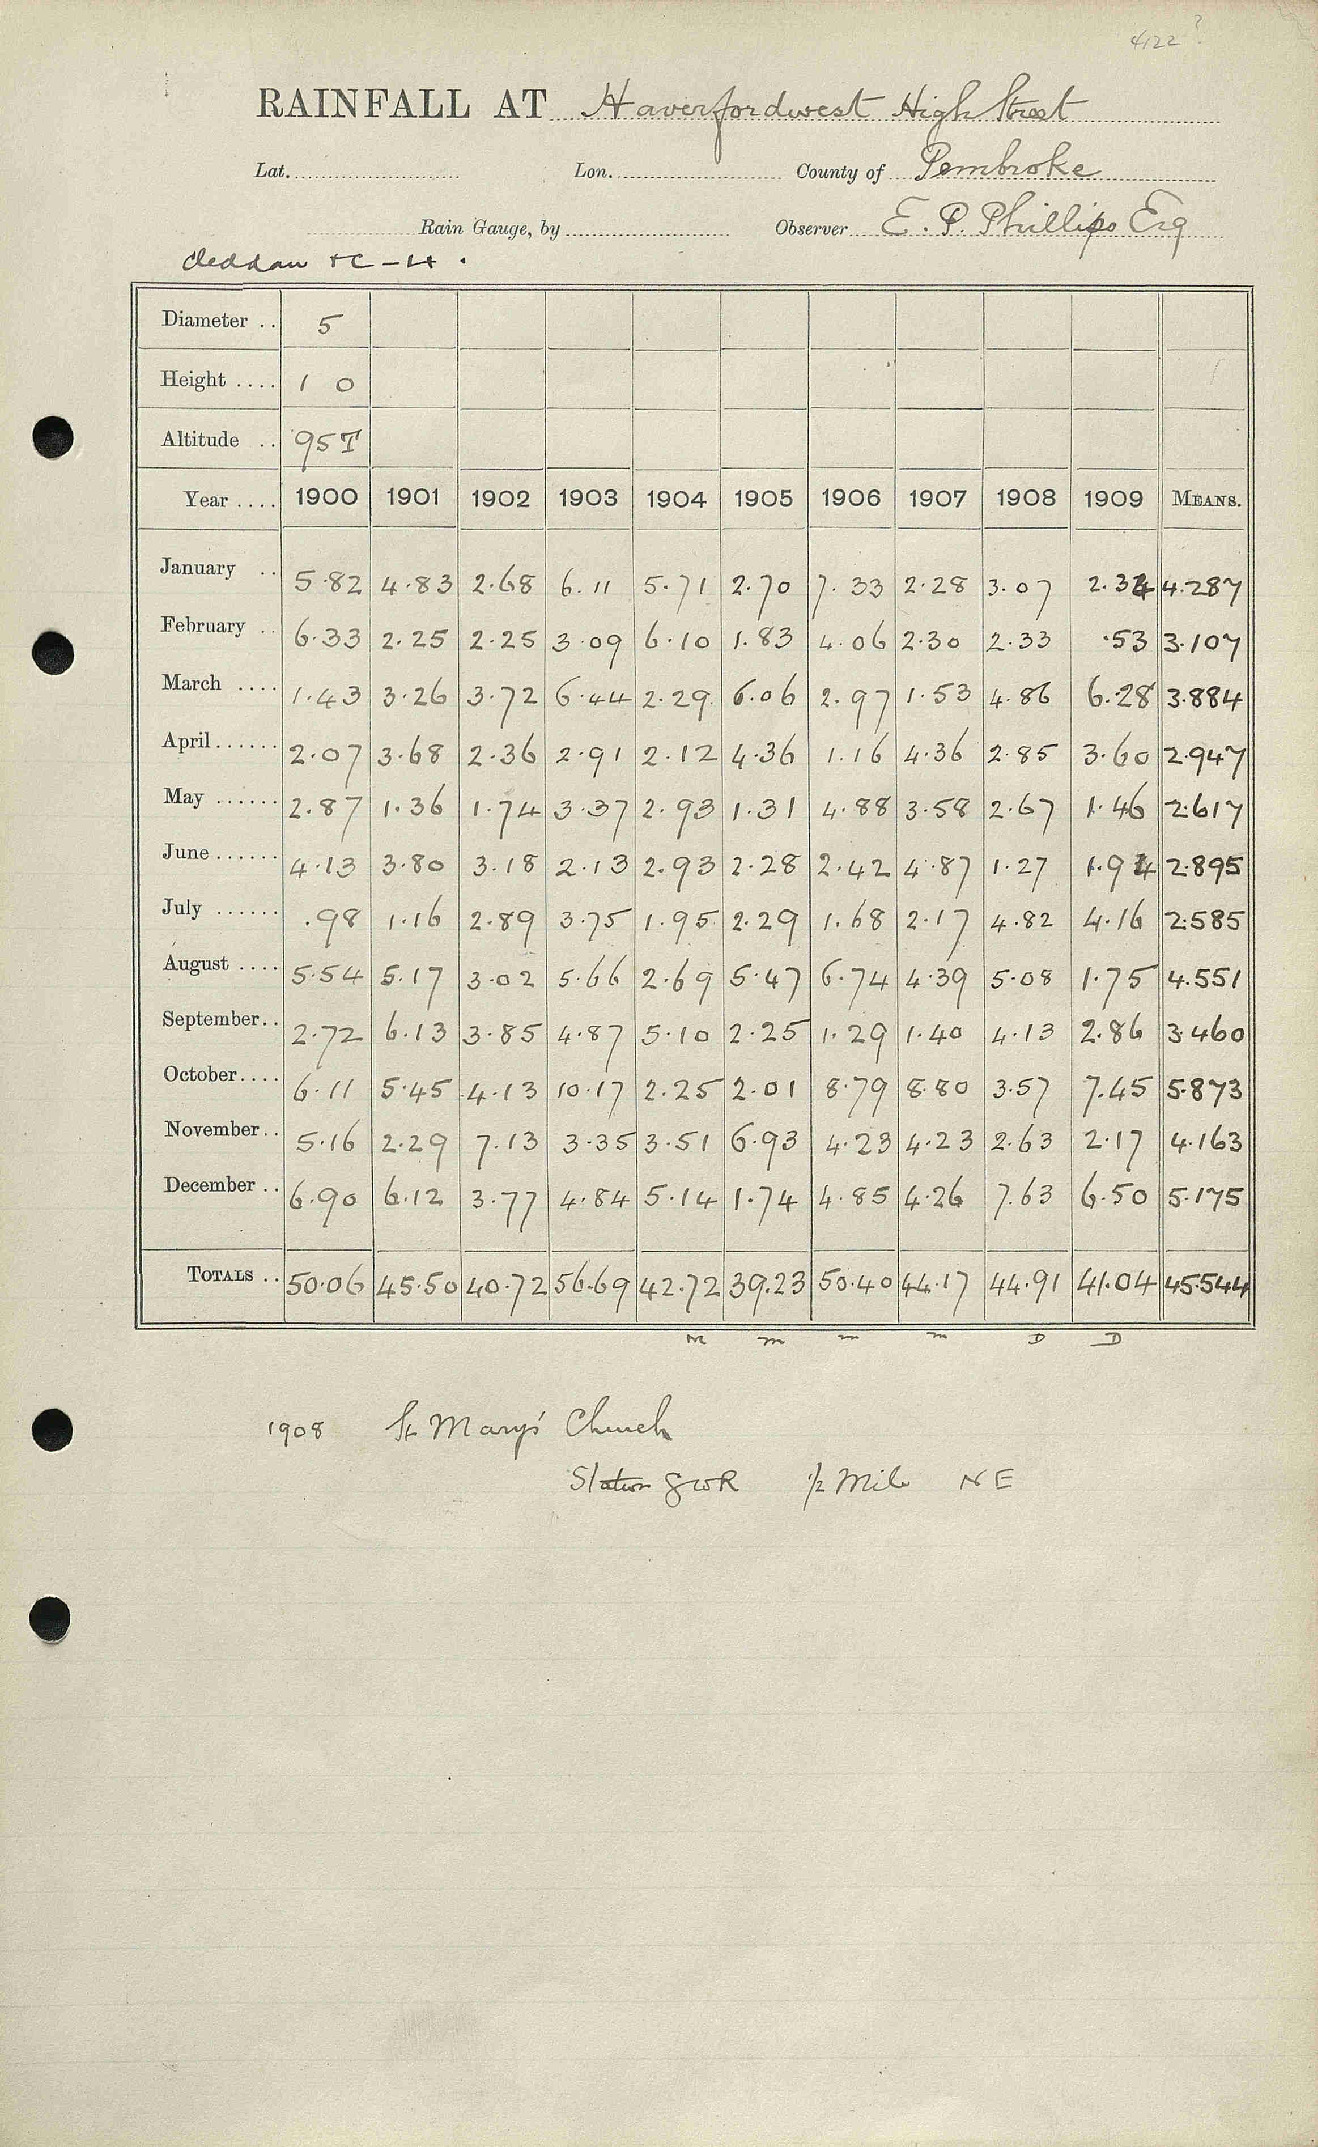 4122 ?
RAINFALL AT Haverfordwest High Street
Lat. Lon. County of Pembroke
Rain Gauge, by Observer E. P. Phillips Esq
Cleddau + C - H .
Diameter .. 5
Height .... 1 0
Altitude .. 95 T
Year .... 1900 1901 1902 1903 1904 1905 1906 1907 1908 1909 MEANS.
January .. 5.82 4.83 2.68 6.11 5.71 2.70 7.33 2.28 3.07 2.34 4.287
February .. 6.33 2.25 2.25 3.09 6.10 1.83 4.06 2.30 2.33 .53 3.107
March .... 1.43 3.26 3.72 6.44 2.29 6.06 2.97 1.53 4.86 6.28 3.884
April...... 2.07 3.68 2.36 2.91 2.12 4.36 1.16 4.36 2.85 3.60 2.947
May ...... 2.87 1.36 1.74 3.37 2.93 1.31 4.88 3.58 2.67 1.46 2.617
June...... 4.13 3.80 3.18 2.13 2.93 2.28 2.42 4.87 1.27 1.94 2.895
July ...... .98 1.16 2.89 3.75 1.95 2.29 1.68 2.17 4.82 4.16 2.585
August .... 5.54 5.17 3.02 5.66 2.69 5.47 6.74 4.39 5.08 1.75 4.551
September.. 2.72 6.13 3.85 4.87 5.10 2.25 1.29 1.40 4.13 2.86 3.460
October.... 6.11 5.45 4.13 10.17 2.25 2.01 8.79 8.80 3.57 7.45 5.873
November.. 5.16 2.29 7.13 3.35 3.51 6.93 4.23 4.23 2.63 2.17 4.163
December .. 6.90 6.12 3.77 4.84 5.14 1.74 4.85 4.26 7.63 6.50 5.175
TOTALS .. 50.06 45.50 40.72 56.69 42.72 39.23 50.40 44.17 44.91 41.04 45.544
m m m m D D
1908 St Mary's Church
Station GWR 1/2 Mile NE